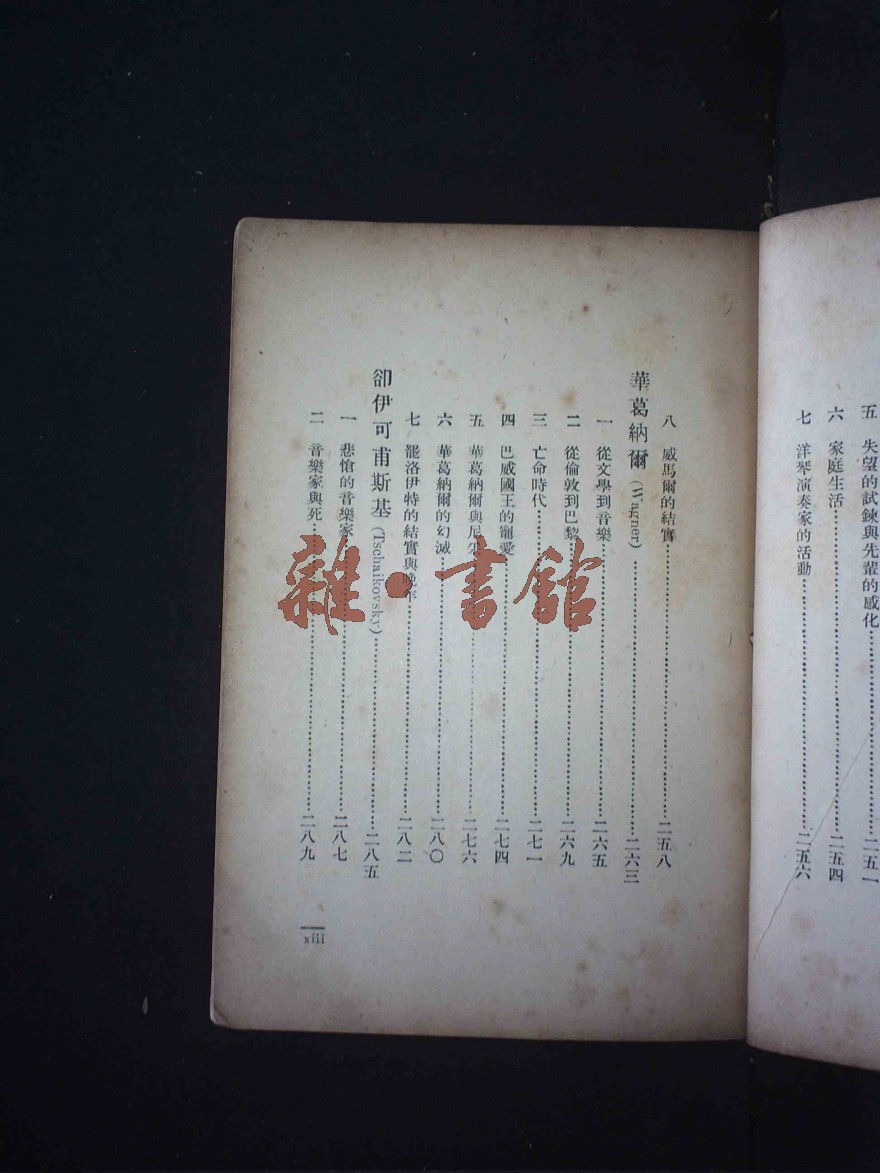 五 失望的試鍊與先輩的感化……二五一
六 家庭生活……二五四
七 洋琴演奏家的活動……二五六
八 威馬爾的結實……二五八
華葛納爾 (Wagner)……二六三
一 從文學到音樂……二六五
二 從倫敦到巴黎……二六九
三 亡命時代……二七一
四 巴威國王的寵愛……二七四
五 華葛納爾與尼采……二七六
六 華葛納爾的幻滅……二八〇
七 罷洛伊特的結實與晚年……二八二
卻伊可甫斯基 (Tschaikovsky)……二八五
一 悲愴的音樂家……二八七
二 音樂家與死……二八九
xiii
雜·書館